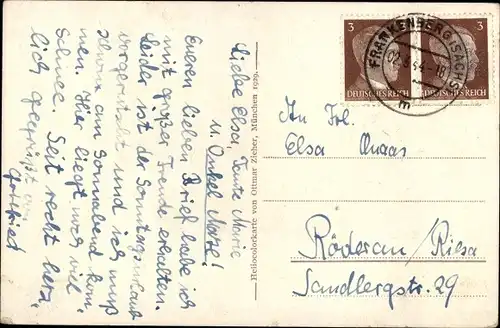 Liebe Elsa, Tante Marie
u. Onkel Max!
Eueren lieben Brief habe ich
mit großer Freude erhalten.
Leider ist der Sonntagsurlaub
vorgerutscht und ich muß
schon am Sonnabend kom-
men. Hier liegt noch viel
Schnee. Seit recht herz-
lich gegrüßt von
Gottfried
Heliocolorkarte von Ottmar Zieher, München 1029.
FRANKENBERG (SACHS)
3.44
m
3
DEUTSCHES REICH
3
DEUTSCHES REICH
An Frl.
Elsa Quaas
Röderau/Riesa
Sandbergstr. 29